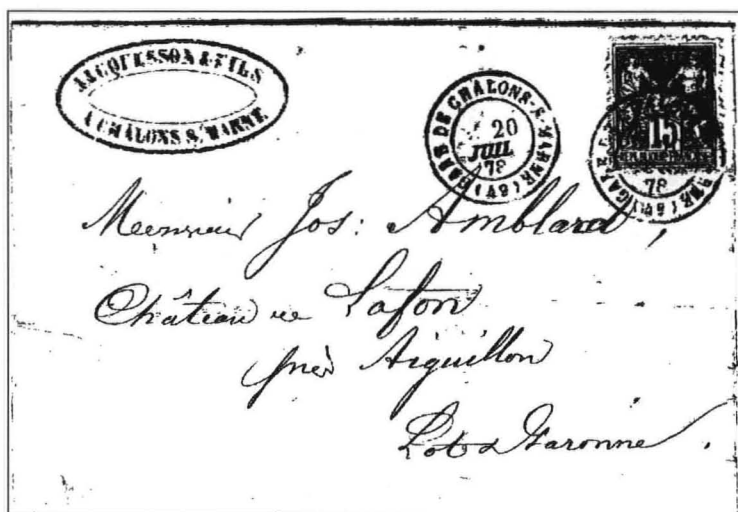 JACQUESSON & FILS
A CHÂLONS S/ MARNE
GARE DE CHALONS-S-MARNE (49)
20
JUIL
78
15
78
Monsieur Jos: Amblard,
Château de Lafon
près Aiguillon
Lot & Garonne.